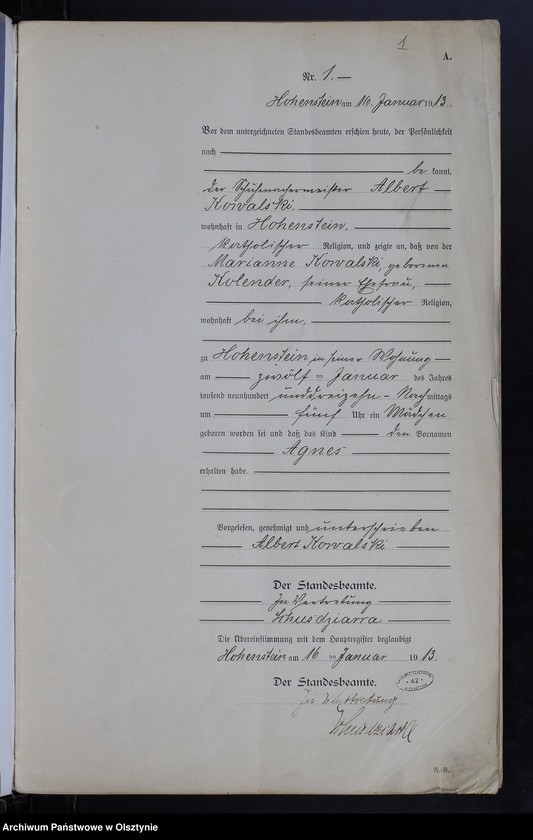 1
A.
Nr. 1.
Hohenstein am 16. Januar 1913.
Vor dem unterzeichneten Standesbeamten erschien heute, der Persönlichkeit
nach
be kannt,
der Schuhmachermeister Albert
Kowalski,
wohnhaft in Hohenstein,
katholischer Religion, und zeigte an, daß von der
Marianne Kowalski, geborenen
Kolender, seiner Ehefrau,
katholischer Religion,
wohnhaft bei ihm,
zu Hohenstein in seiner Wohnung
am zwölften Januar des Jahres
tausend neunhundert unddreizehn - Nachmittags
um fünf Uhr ein Mädchen
geboren worden sei und daß das Kind den Vornamen
Agnes
erhalten habe.
Vorgelesen, genehmigt und unterschrieben
Albert Kowalski
Der Standesbeamte.
In Vertretung
Die Übereinstimmung mit dem Hauptregister beglaubigt
Hohenstein am 16 ten Januar 1913.
Der Standesbeamte.
42
In Vertretung
R.-R.
Archiwum Państwowe w Olsztynie